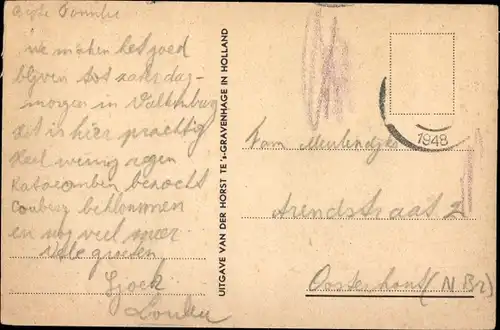 Beste Familie
we maken het goed
blijven tot zaterdag-
morgen in Valkenburg
Het is hier prachtig
Heel weinig regen
Katacomben bezocht
Cauberg beklommen
en nog veel meer
Vele groeten
Sjoek
UITGAVE VAN DER HORST TE 's-GRAVENHAGE IN HOLLAND
1948
Fam Meulendijks
Arendstraat 2
Oosterhout (N Br)